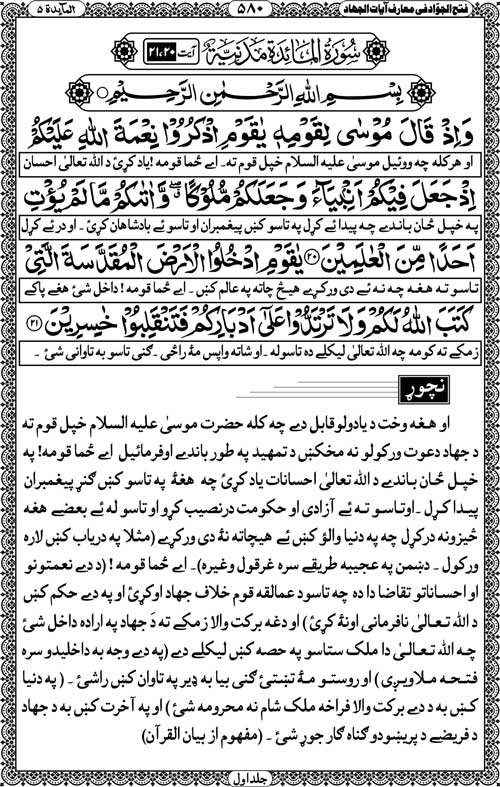 فتح الجوّاد فی معارف آیات الجهاد ۵۸۰ المآیدة ۵
سُورَةُ الْمَائِدَةِ مَدَنِيَّةٌ آیت ۲۱،۲۰
بِسْمِ اللهِ الرَّحْمٰنِ الرَّحِيْمِ
وَإِذْ قَالَ مُوْسٰى لِقَوْمِهٖ يٰقَوْمِ اذْكُرُوْا نِعْمَةَ اللهِ عَلَيْكُمْ
او هرکله چه ووئیل موسیٰ علیه السلام خپل قوم ته۔ اے ځما قومه !یاد کړئ د الله تعالیٰ احسان
إِذْ جَعَلَ فِيْكُمْ أَنْۢبِيَآءَ وَجَعَلَكُمْ مُّلُوْكًا وَّاٰتٰىكُمْ مَّا لَمْ يُؤْتِ
په خپل ځان باندے چه پیدا ئے کړل په تاسو کښ پیغمبران او تاسو ئے بادشاهان کړئ ۔ او درئے کړل
أَحَدًا مِّنَ الْعٰلَمِيْنَ ۲۰ يٰقَوْمِ ادْخُلُوا الْأَرْضَ الْمُقَدَّسَةَ الَّتِيْ
تاسو ته هغه چه نه ئے دی ورکړے هیڅ چاته په عالم کښ۔ اے ځما قومه ! داخل شئ هغے پاکے
كَتَبَ اللهُ لَكُمْ وَلَا تَرْتَدُّوْا عَلٰى أَدْبَارِكُمْ فَتَنْقَلِبُوْا خٰسِرِيْنَ ۲۱
زمکے ته کومه چه الله تعالیٰ لیکلے ده تاسوله ۔ او شاته واپس مهٔ راځی ۔ ګنی تاسو به تاوانی شئ ۔
نچوړ
او هغه وخت د یادولو قابل دے چه کله حضرت موسیٰ علیه السلام خپل قوم ته
د جهاد دعوت ورکولو نه مخکښ د تمهید په طور باندے اوفرمائیل اے ځما قومه! په
خپل ځان باندے د الله تعالیٰ احسانات یاد کړئ چه هغهٔ په تاسو کښ ګنړ پیغمبران
پیدا کړل ۔ اوتاسو ته ئے آزادی او حکومت درنصیب کړو او تاسو له ئے بعضے هغه
څیزونه درکړل چه په دنیا والؤ کښ ئے هیچاته نهٔ دی ورکړے (مثلا په دریاب کښ لاره
ورکول ۔ دښمن په عجیبه طریقے سره غرقول وغیره)۔ اے ځما قومه !(د دے نعمتونو
او احساناتو تقاضا دا ده چه تاسو د عمالقه قوم خلاف جهاد اوکړئ او په دے حکم کښ
د الله تعالیٰ نافرمانی اونهٔ کړئ) او دغه برکت والا زمکے ته د جهاد په اراده داخل شئ
چه الله تعالیٰ دا ملک ستاسو په حصه کښ لیکلے دے (په دے وجه به داخلیدو سره
فتحه ملاویږی) او روستو مهٔ تښتئ ګنی بیا به ډیر په تاوان کښ راشئ ۔ (په دنیا
کښ به د دے برکت والا فراخه ملک شام نه محرومه شئ) او په آخرت کښ به د جهاد
د فریضے د پریښودو ګناه ګار جوړ شئ ۔ (مفهوم از بیان القرآن)
جلد اول